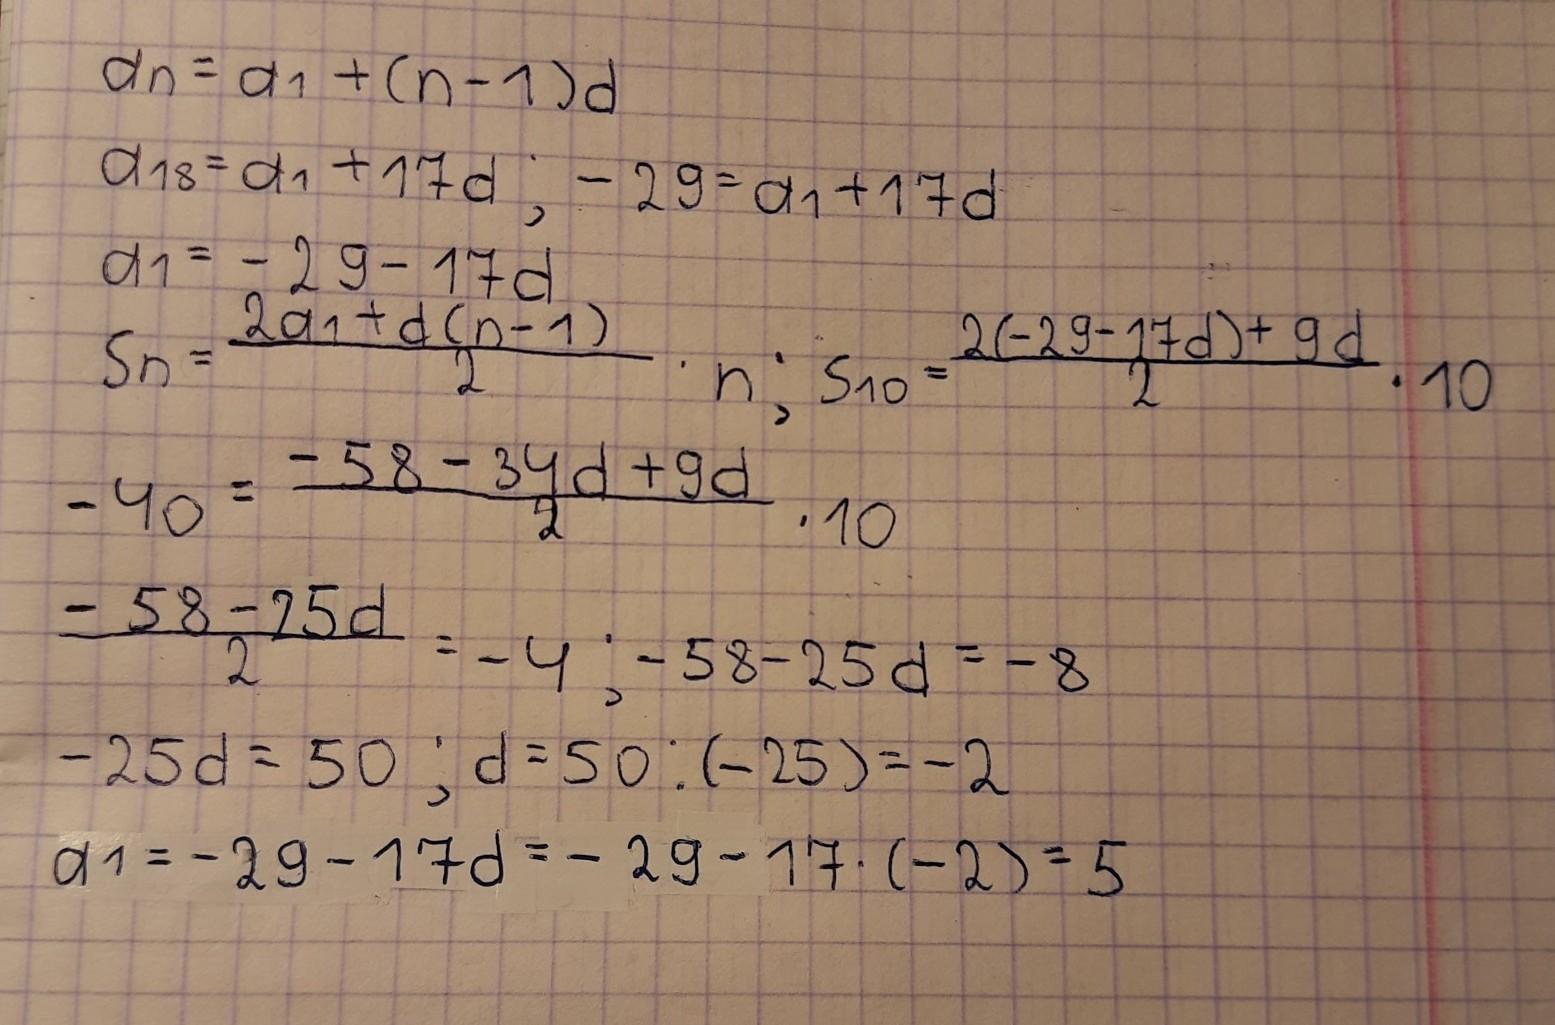 an = a1 + (n - 1)d
a18 = a1 + 17d ; - 29 = a1 + 17d
a1 = - 29 - 17d
Sn = (2a1 + d(n - 1))/2 · n ; S10 = (2(-29 - 17d) + 9d)/2 · 10
-40 = (-58 - 34d + 9d)/2 · 10
(- 58 - 25d)/2 = - 4 ; - 58 - 25d = - 8
- 25d = 50 ; d = 50 : (- 25) = - 2
a1 = - 29 - 17d = - 29 - 17 · (- 2) = 5